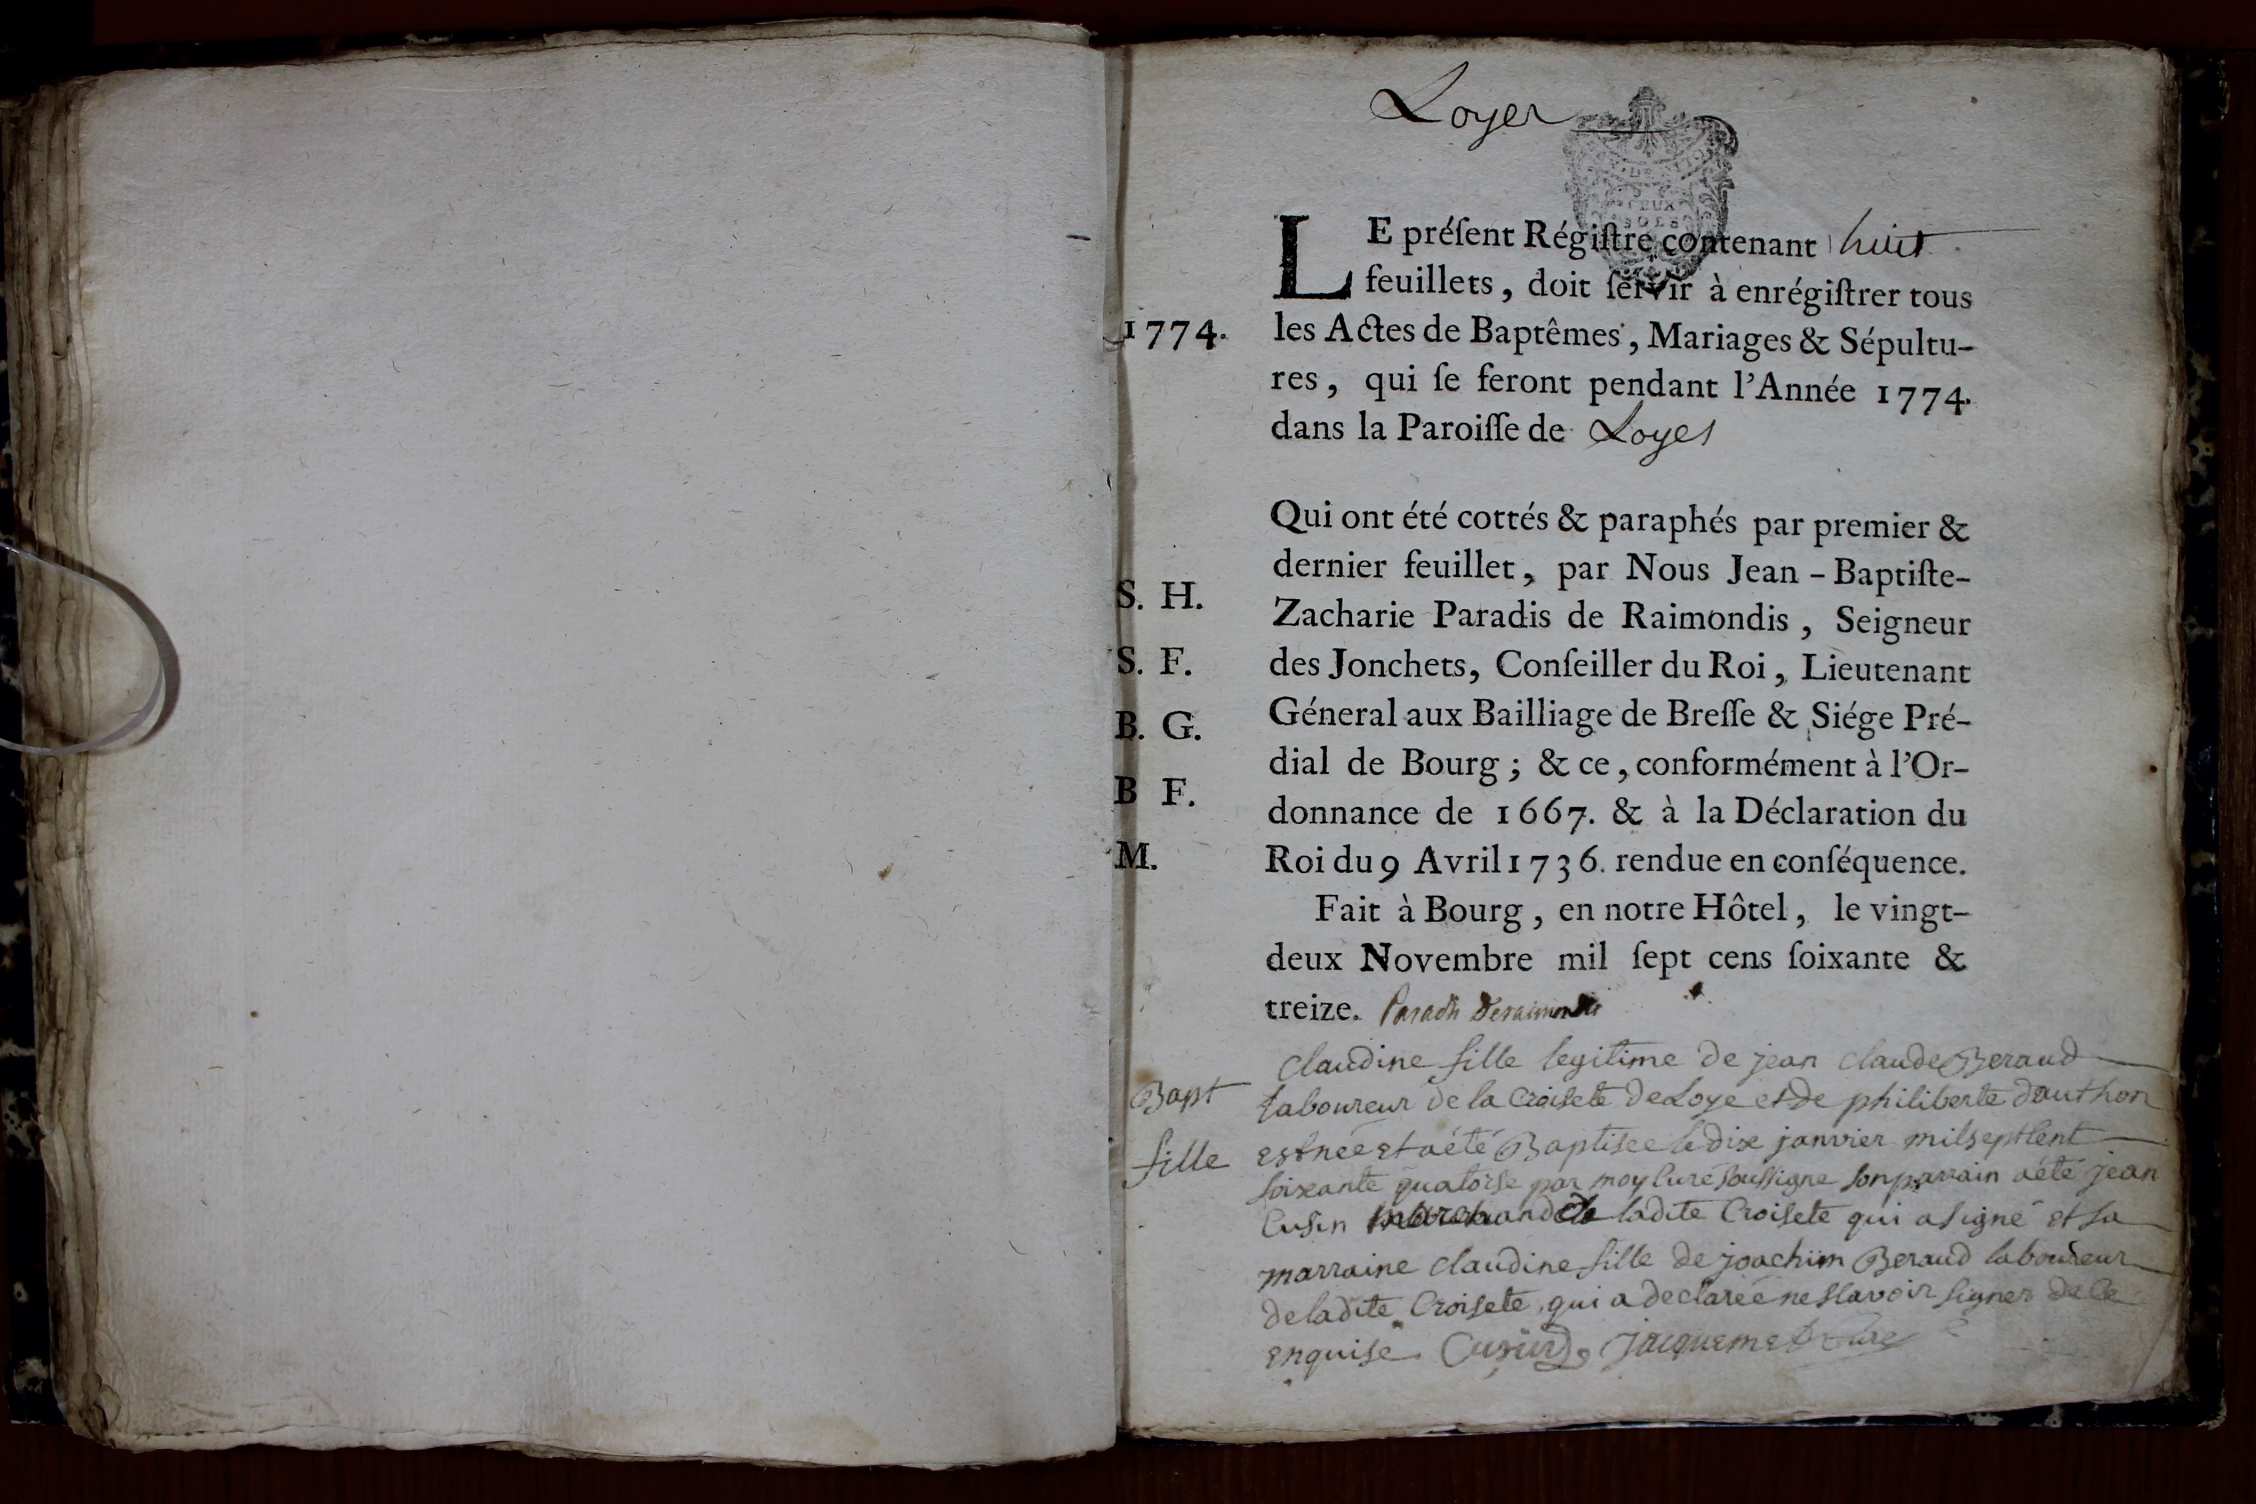 Loyes
LE préſent Régiſtre contenant huit
feuillets, doit ſervir à enrégiſtrer tous
1774.
les Actes de Baptêmes, Mariages & Sépultu-
res, qui ſe feront pendant l'Année 1774.
dans la Paroiſſe de Loyes
Qui ont été cottés & paraphés par premier &
dernier feuillet, par Nous Jean-Baptiſte-
S. H.
Zacharie Paradis de Raimondis, Seigneur
S. F.
des Jonchets, Conſeiller du Roi, Lieutenant
B. G.
Géneral aux Bailliage de Breſſe & Siége Pré-
dial de Bourg; & ce, conformément à l'Or-
B F.
donnance de 1667. & à la Déclaration du
M.
Roi du 9 Avril 1736. rendue en conſéquence.
Fait à Bourg, en notre Hôtel, le vingt-
deux Novembre mil ſept cens ſoixante &
treize. Paradis Deraimondis
Bapt
fille
claudine fille legitime de jean claude Beraud
laboureur de la Croisete de Loye et de philiberte dauthon
est née et a été Baptisee le dix janvier mil sept cent
soixante quatorse par moy curé soussigne son parrain a été jean
Cusin marchand de ladite Croisete qui a signé et sa
marraine claudine fille de joachim Beraud laboureur
de ladite Croisete, qui a declareé ne scavoir signer de ce
enquise Cusin jacquemet curé